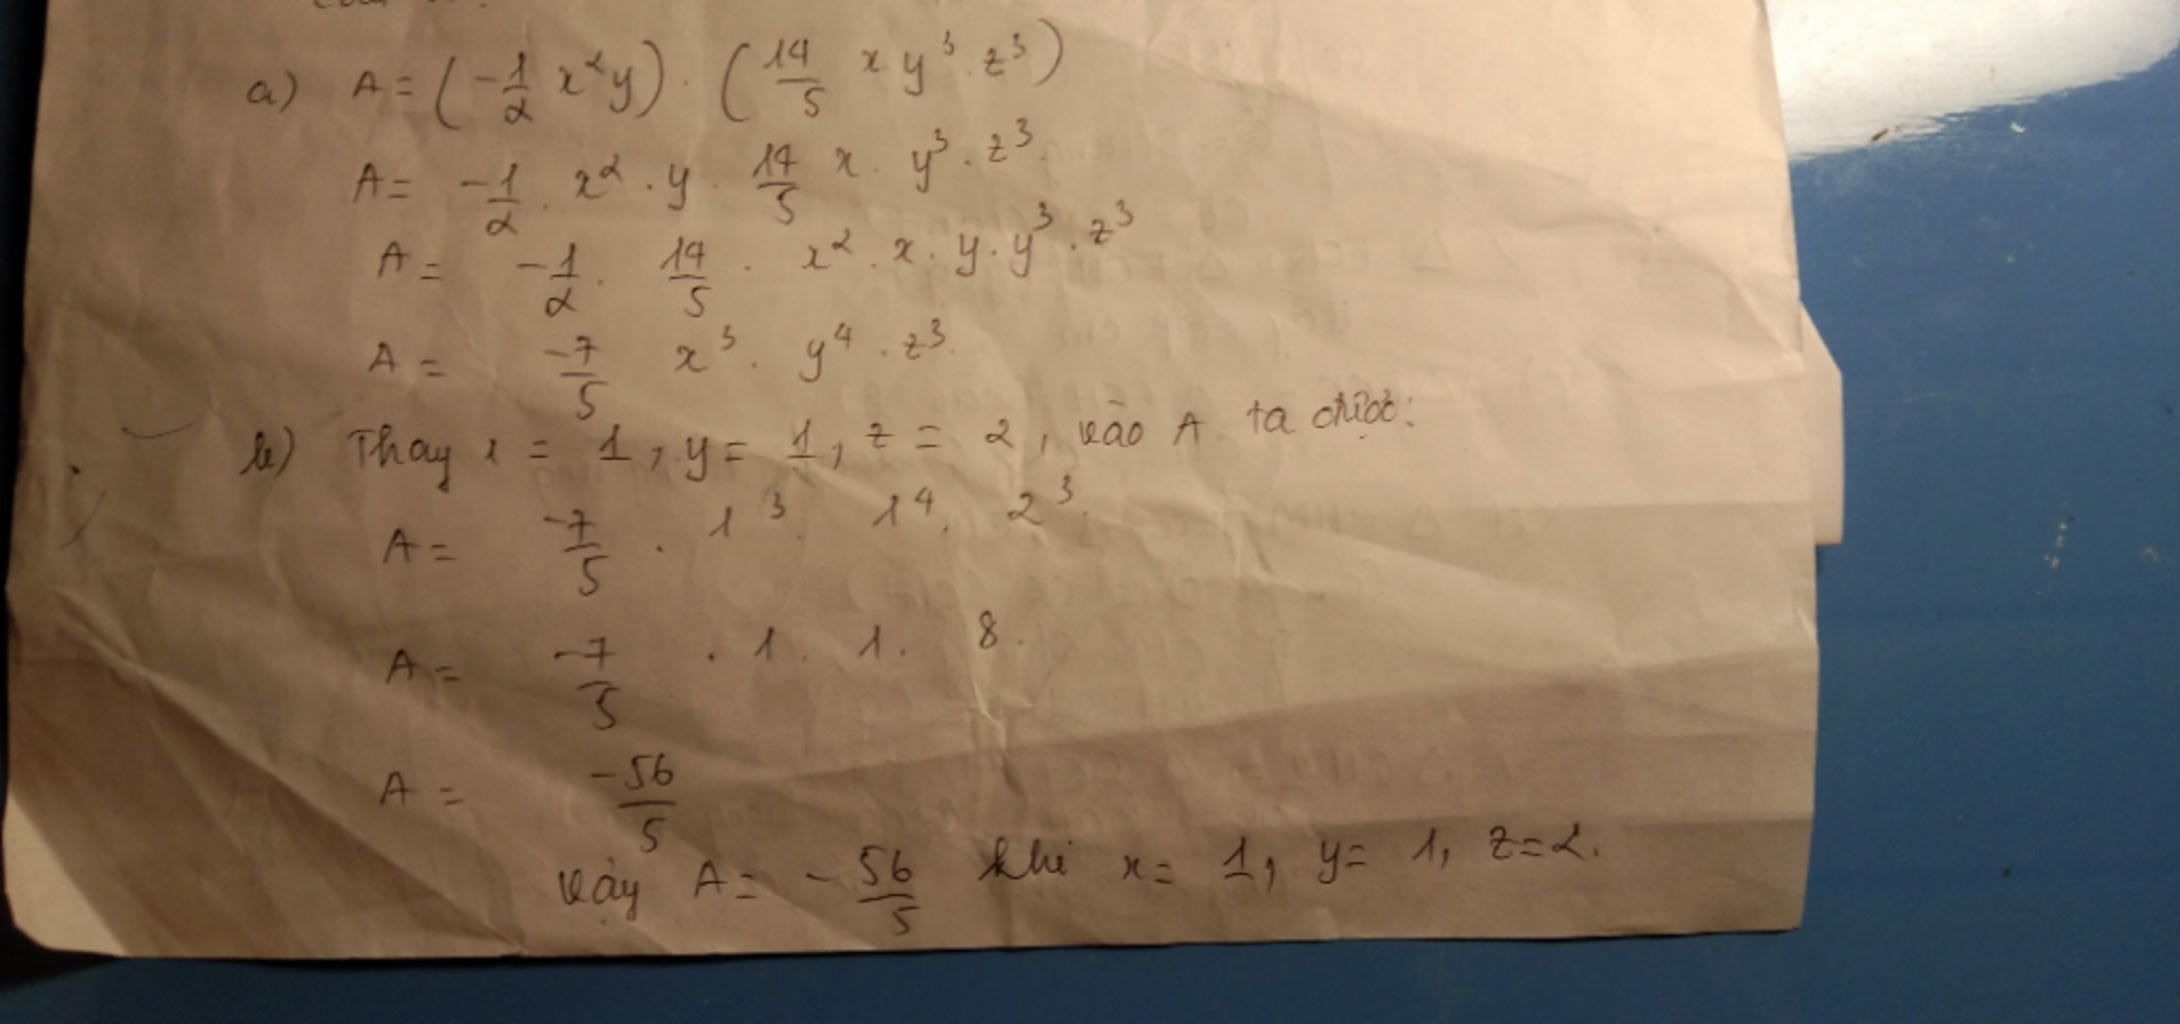 a) A = (-1/2 x²y) . (14/5 x y³ . z³)
A = -1/2 . x² . y . 14/5 x . y³ . z³
A = -1/2 . 14/5 . x² . x . y . y³ . z³
A = -7/5 x³ . y⁴ . z³.
b) Thay x = 1, y = 1, z = 2, vào A ta được:
A = -7/5 . 1³ . 1⁴ . 2³.
A = -7/5 . 1 . 1 . 8.
A = -56/5
Vậy A = -56/5 khi x = 1, y = 1, z = 2.